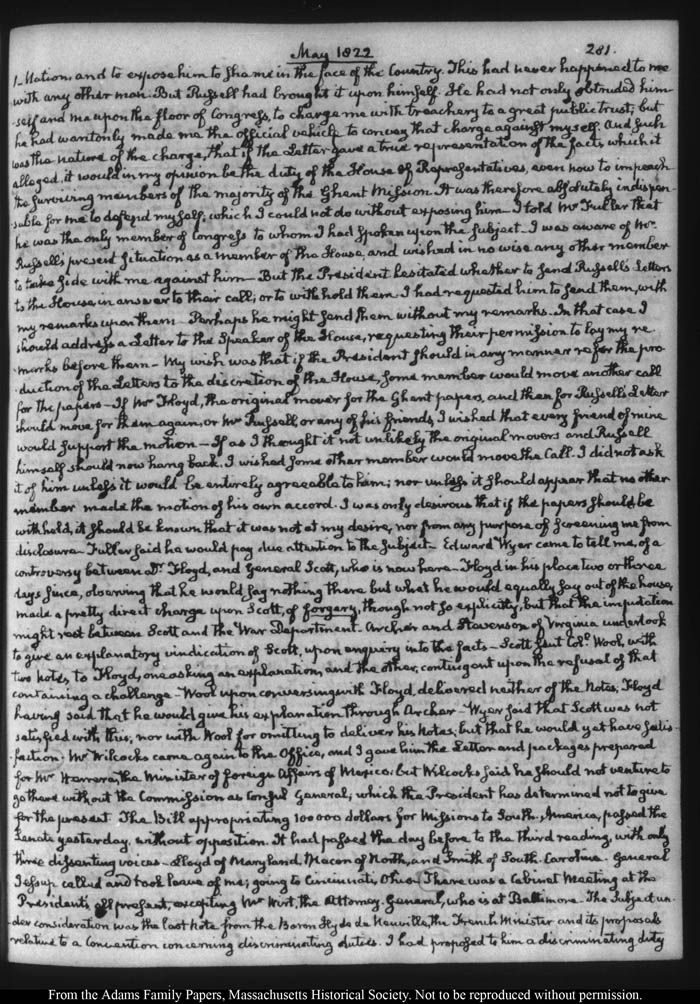 May 1822
281.
1_Nation, and to expose him to shame in the face of the Country. This had never happened to me
with any other man. But Russell had brought it upon himself. He had not only obtruded him
self and me upon the floor of Congress, to charge me with treachery to a great public trust; but
he had wantonly made me the official vehicle to convey that charge against myself. And such
was the nature of the charge, that if the Letter gave a true representation of the facts which it
alleged it would in my opinion be the duty of the House of Representatives, even now to impeach
the surviving members of the majority of the Ghent Mission. It was therefore absolutely indispen-
sable for me to defend myself; which I could not do without exposing him_ I told Mr Fuller that
he was the only member of Congress to whom I had spoken upon the subject_ I was aware of Mr
Russell's present situation as a member of the House, and wished in no wise any other member
to take side with me against him_ But the President hesitated whether to send Russell's Letters
to the House in answer to their call; or to withhold them. I had requested him to send them, with
my remarks upon them_ Perhaps he might send them without my remarks_ In that case I
should address a Letter to the Speaker of the House, requesting their permission to lay my re
marks before them_ My wish was that if the President should in any manner refer the pro-
duction of the Letters to the discretion of the House, some member would move another call
for the papers_ If Mr Floyd, the original mover for the Ghent papers, and then for Russell's Letter
should move for them again; or Mr Russell, or any of his friends, I wished that every friend of mine
would support the motion_ If as I thought it not unlikely the original movers and Russell
himself should now hang back, I wished some other member would move the Call. I did not ask
it of him unless it would be entirely agreeable to him; nor unless it should appear that no other
member made the motion of his own accord. I was only desirous that if the papers should be
withheld, it should be known that it was not at my desire, nor from any purpose of screening me from
disclosure_ Fuller said he would pay due attention to the subject_ Edward Wyer came to tell me, of a
controversy between Dr Floyd, and General Scott, who is now here_ Floyd in his place two or three
days since, observing that he would say nothing there but what he would equally say out of the house,
made a pretty direct charge upon Scott, of forgary, though not so explicitly, but that the imputation
might rest between Scott and the War Department. Archer and Stevenson of Virginia undertook
to give an explanatory vindication of Scott, upon enquiry into the facts_ Scott sent Col. Wool, with
two notes, to Floyd, one asking an explanation, and the other, contingent upon the refusal of that
containing a challenge_ Wool upon conversing with Floyd, delivered neither of the Notes; Floyd
having said that he would give his explanation through Archer_ Wyer said that Scott was not
satisfied with this; nor with Wool for omitting to deliver his Notes; but that he would yet have satis-
faction_ Mr Wilcocks came again to the Office, and I gave him the Letter and packages prepared
for Mr Herrera, the Minister of foreign Affairs of Mexico: but Wilcocks said he should not venture to
go there without the Commission as Consul General; which the President has determined not to give
for the present. The Bill appropriating 100000 dollars for Missions to South, America, passed the
Senate yesterday, without opposition. It had passed the day before to the third reading, with only
three dissenting voices_ Lloyd of Maryland, Macon of North, and Smith of South Carolina_ General
Jessup called and took leave of me; going to Cincinnati, Ohio. There was a Cabinet Meeting at the
President's, all present, excepting Mr Wirt, the Attorney General, who is at Baltimore_ The Subject un-
der consideration was the last note from the Baron Hyde de Neuville, the French Minister and its proposals
relative to a Convention concerning discriminating duties. I had proposed to him a discriminating duty
From the Adams Family Papers, Massachusetts Historical Society. Not to be reproduced without permission.